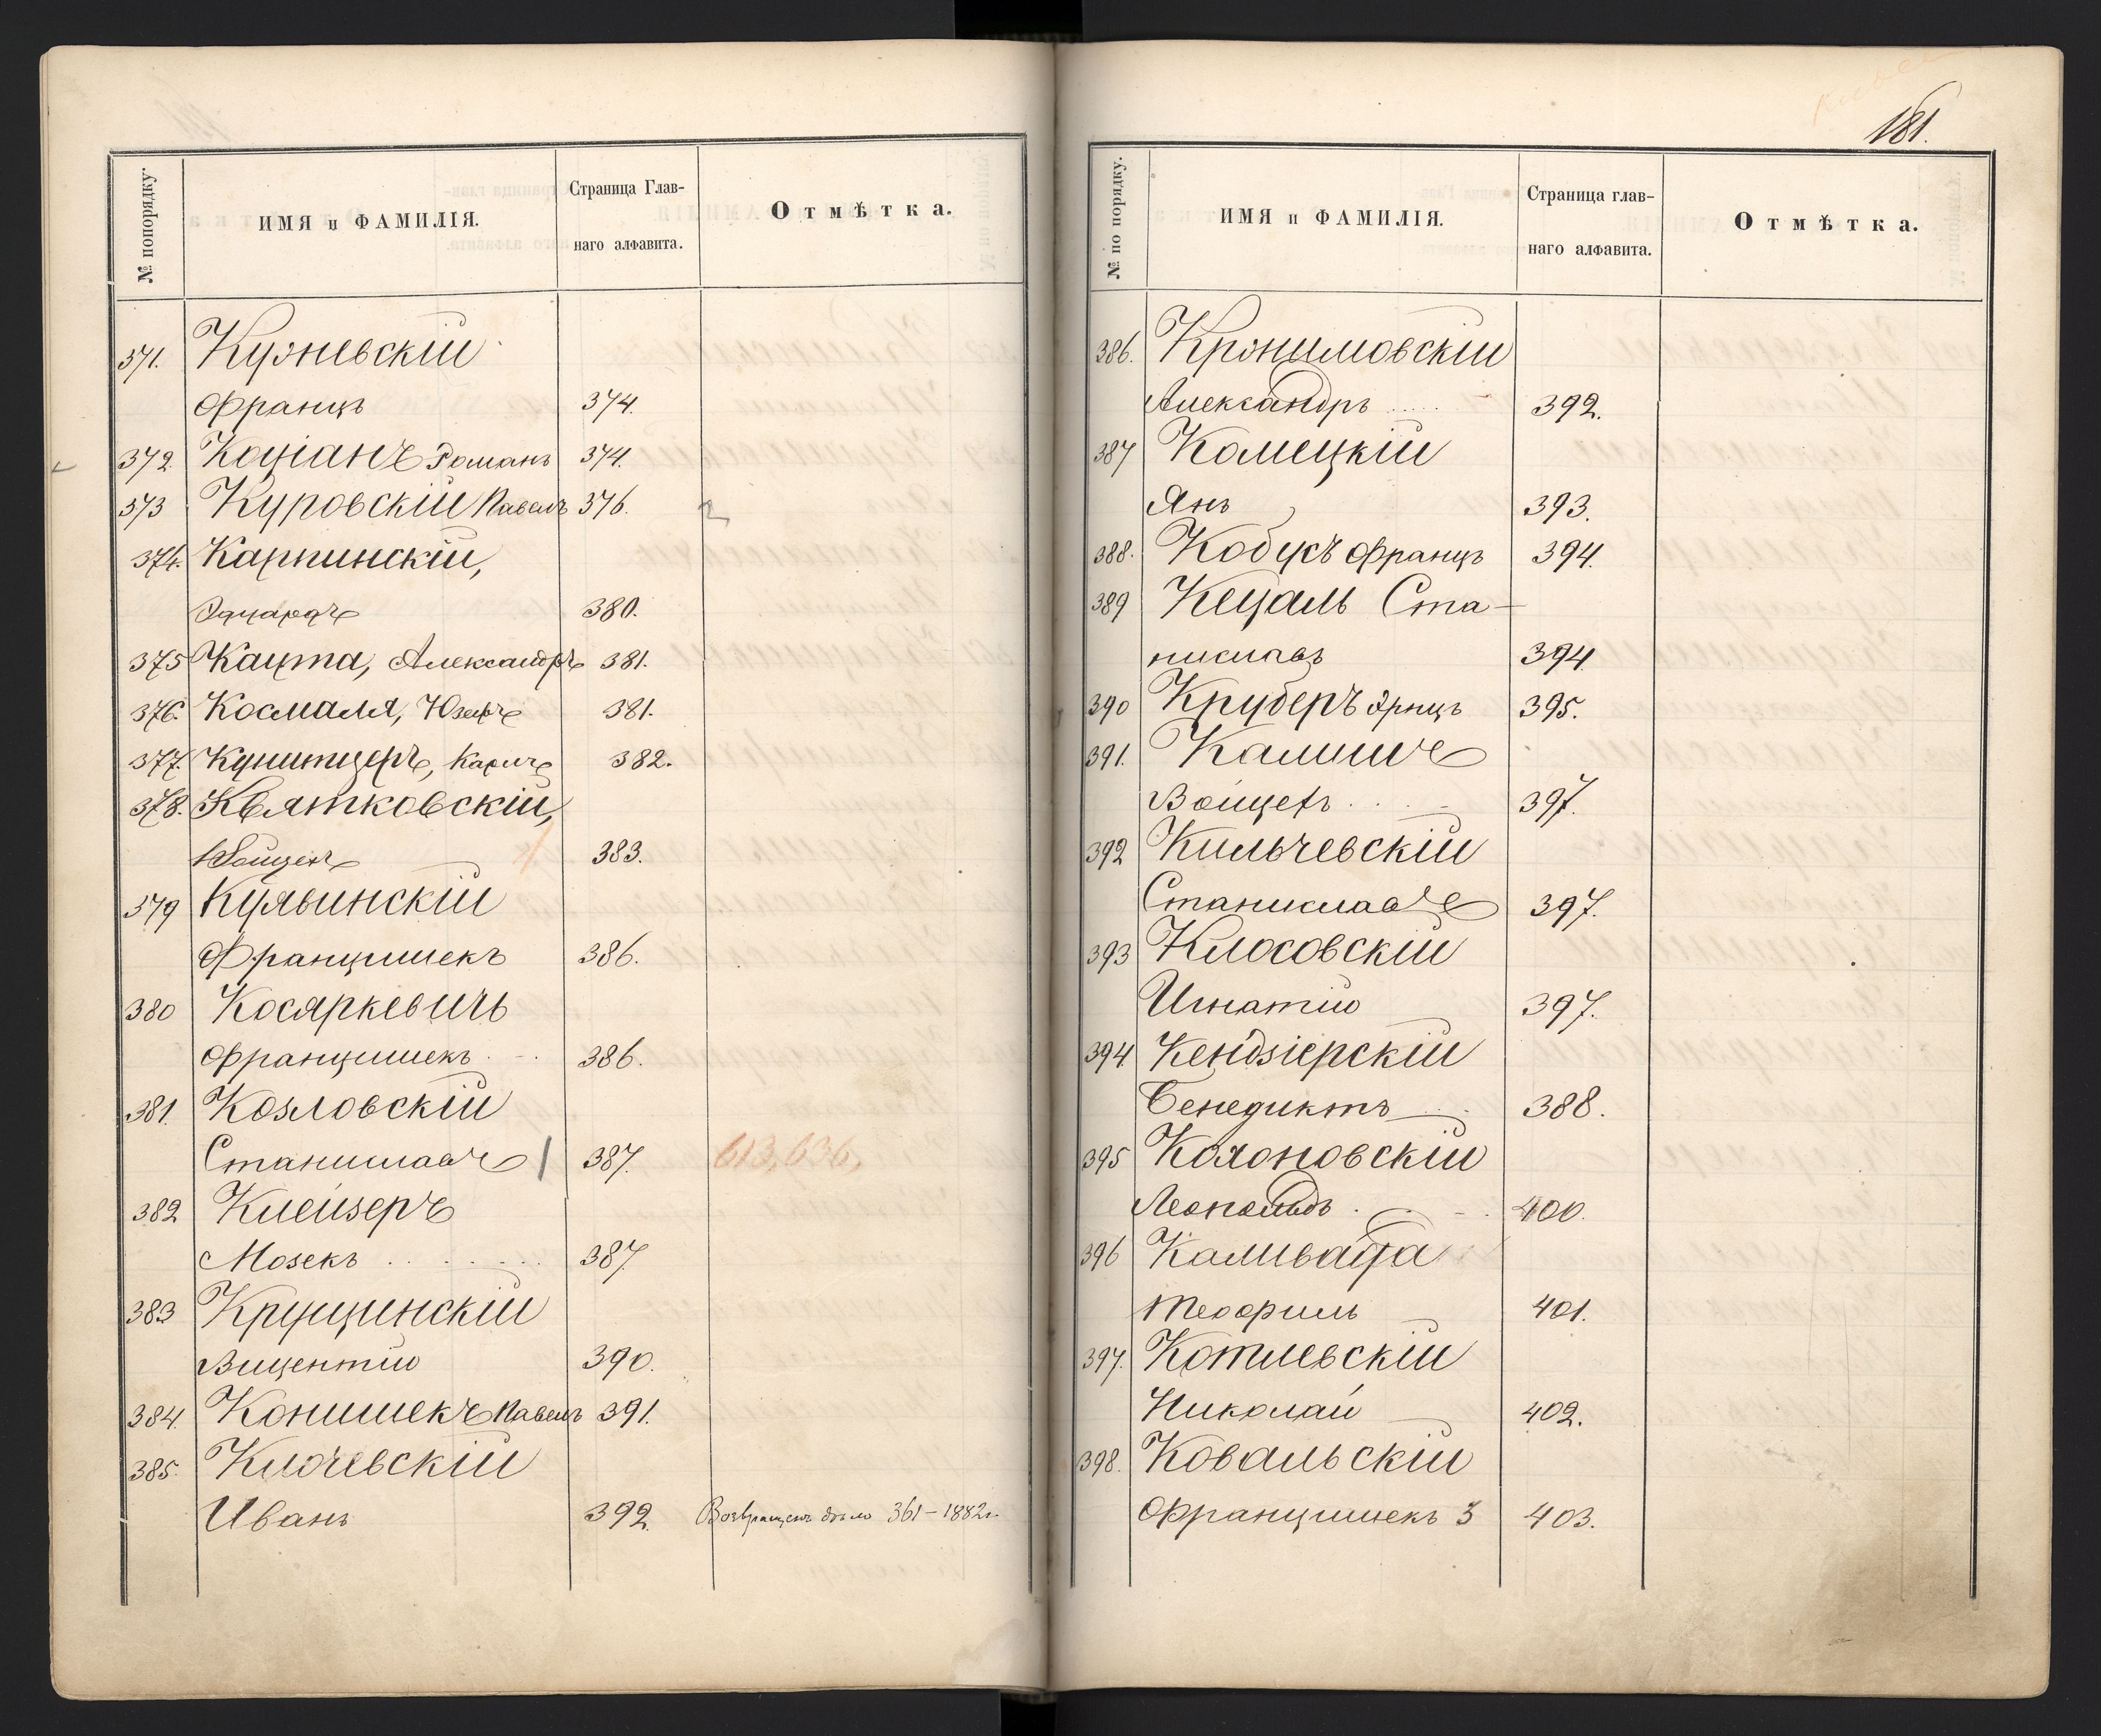 № попорядку.
ИМЯ и ФАМИЛІЯ.
Страница Глав-
наго алфавита.
Отмѣтка.
371. Кузневскій
Францъ 374.
372. Коціанъ Романъ 374.
373 Куровскій Павелъ 376.
374. Карпинскій,
Эдуардъ 380.
375 Каута, Александръ 381.
376. Космаля, Юзефъ 381.
377. Кунитцеръ, Карлъ 382.
378. Квятковскій,
Войцех 383.
379 Куявинскій
Францишекъ 386.
380 Косяркевичъ
Францишекъ 386.
381. Козловскій
Станиславъ 387. 613, 636,
382 Клейзеръ
Мозекъ 387
383 Крущинскій
Вицентій 390.
384. Конишекъ Павелъ 391.
385. Ключевскій
Иванъ 392. Возвращенъ дѣло 361-1882г.
181.
№ по порядку.
ИМЯ и ФАМИЛІЯ.
Страница глав-
наго алфавита.
Отмѣтка.
386. Крэнимовскій
Александръ 392.
387 Комецкій
Янъ 393.
388. Кобусъ Францъ 394.
389 Кецаль Ста-
ниславъ 394
390 Круберъ Эрнцъ 395.
391. Калишъ
Войцехъ 397.
392 Кильчевскій
Станиславъ 397.
393 Клосовскій
Игнатій 397.
394. Кендзіерскій
Бенедиктъ 388.
395 Колоновскій
Леопольдъ 400.
396 Кальвада
Теофиль 401.
397. Котлевскій
Николай 402.
398. Ковальскій
Францишекъ 3 403.